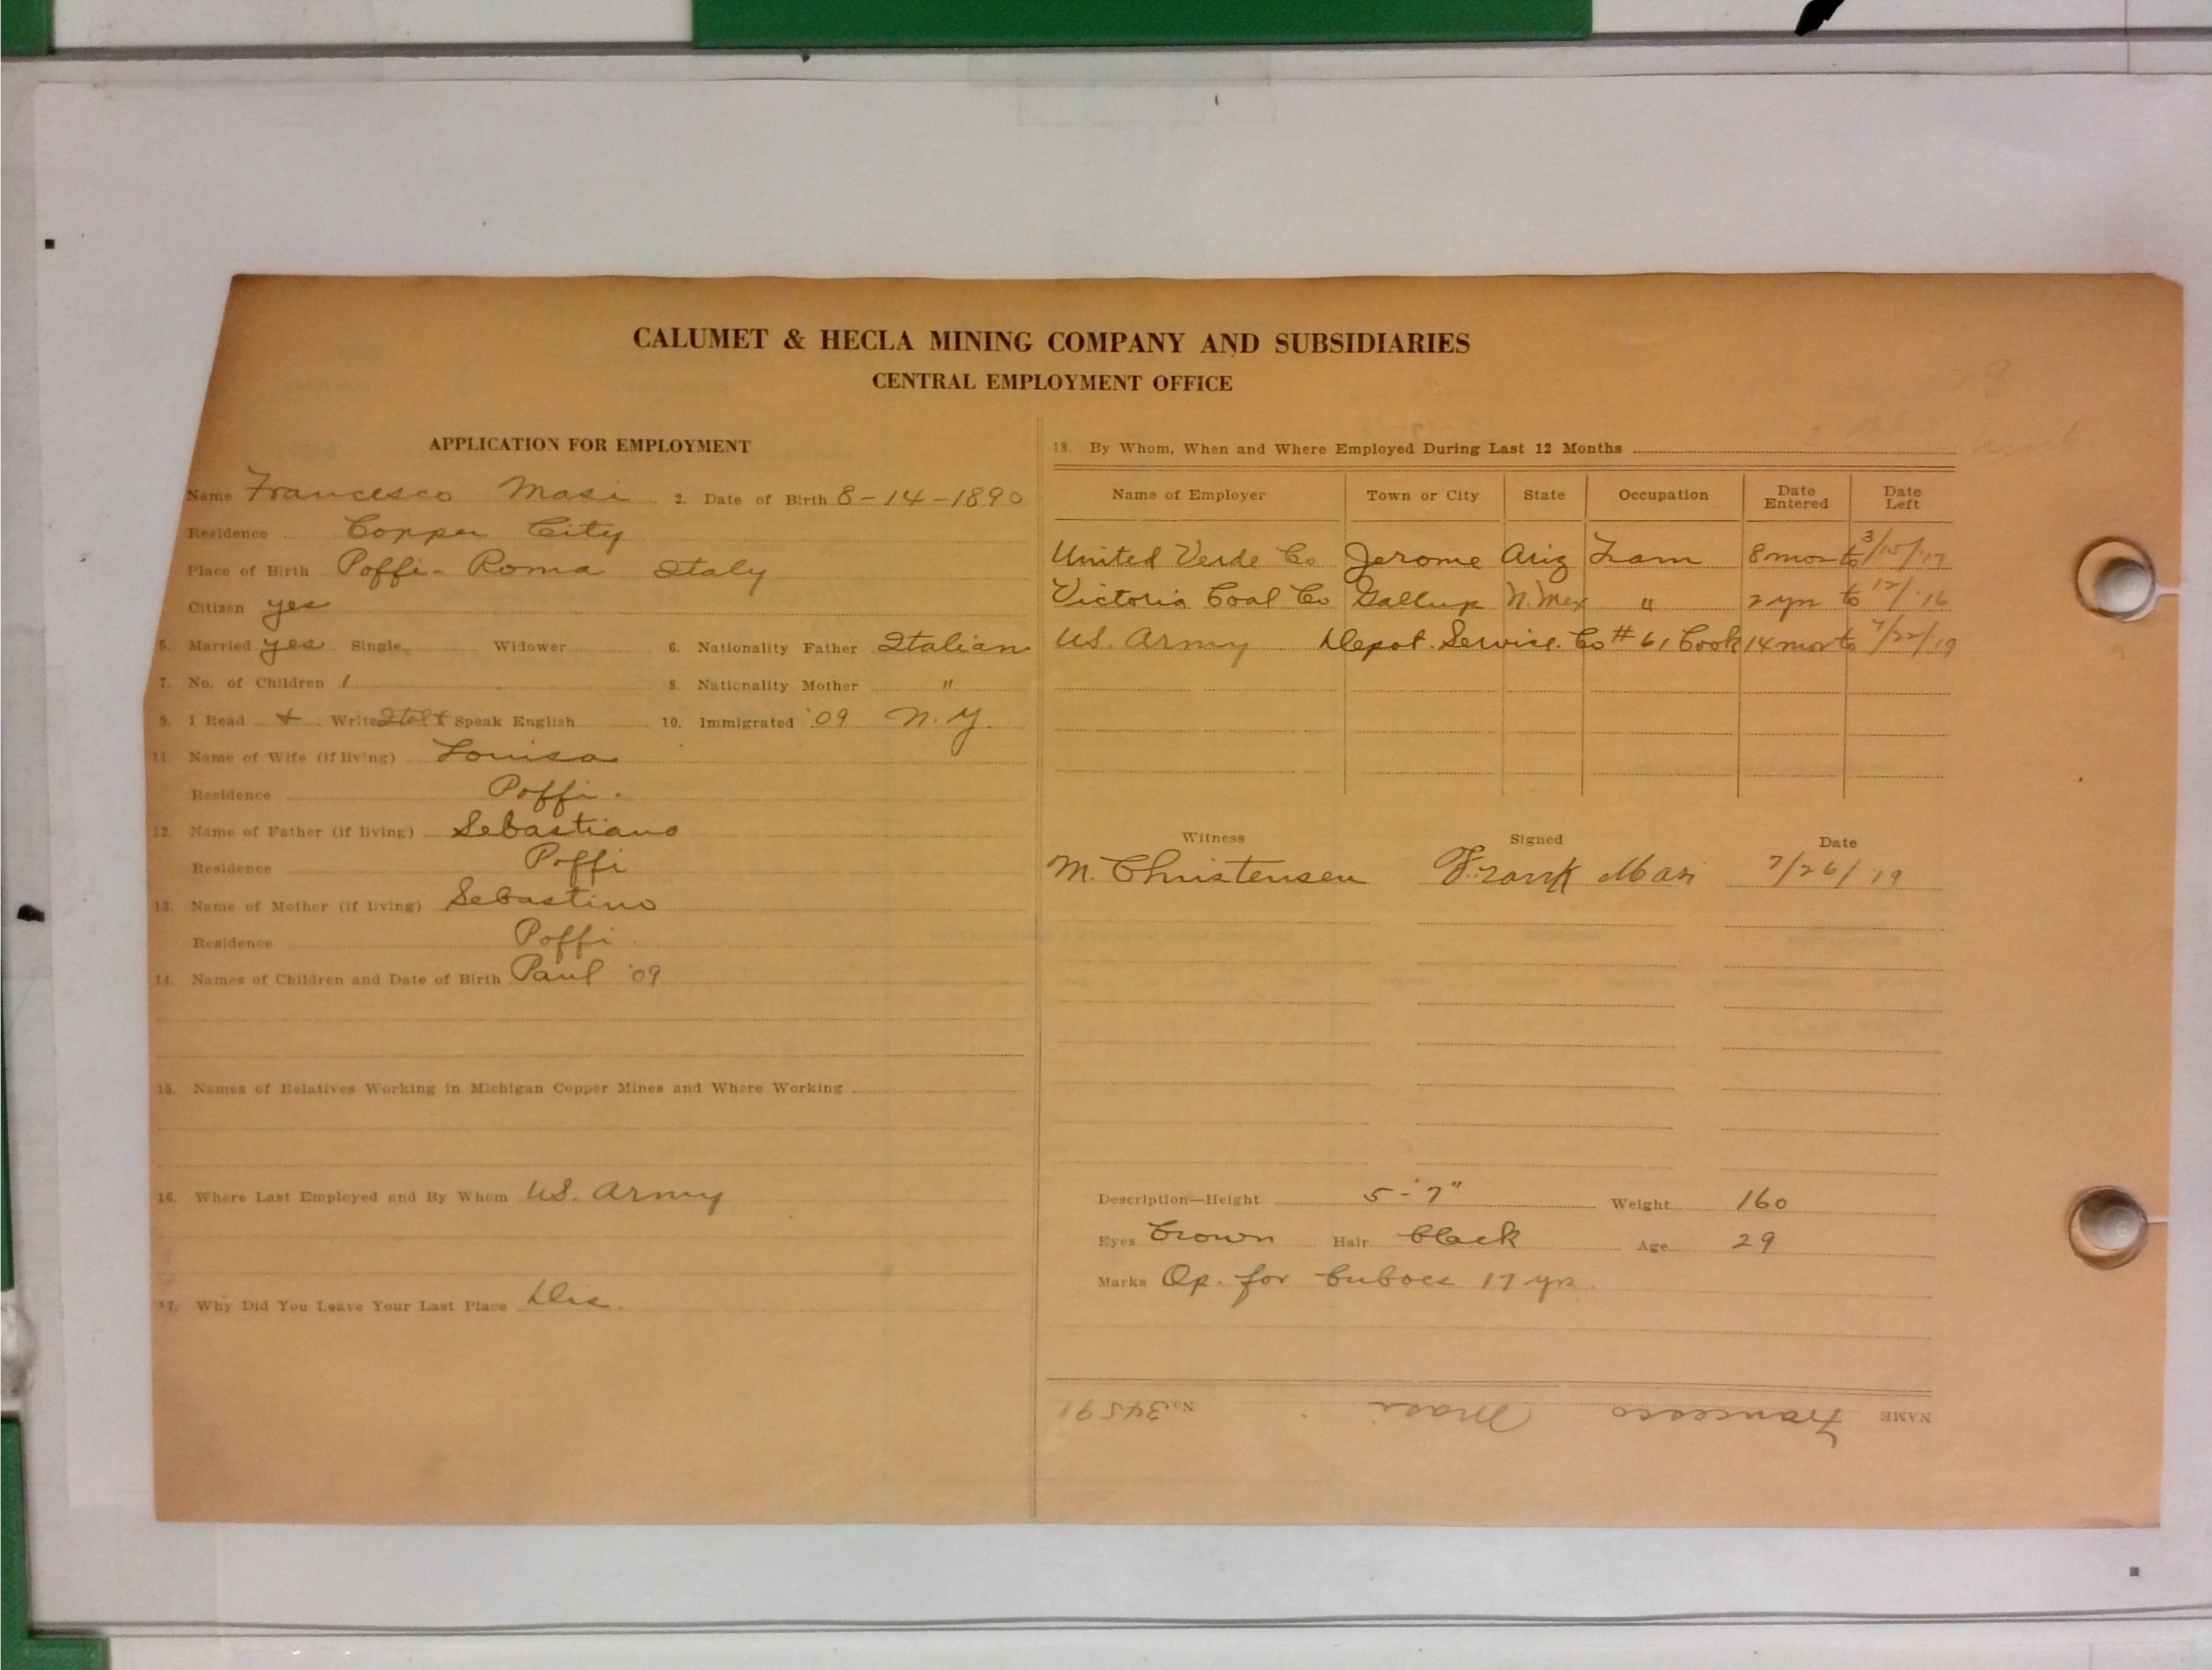 CALUMET & HECLA MINING COMPANY AND SUBSIDIARIES
CENTRAL EMPLOYMENT OFFICE
APPLICATION FOR EMPLOYMENT
Name Francesco Masi 2. Date of Birth 8-14-1890
Residence Copper City
Place of Birth Poffi - Roma Italy
Citizen yes
5. Married yes Single Widower 6. Nationality Father Italian
7. No. of Children 1 8. Nationality Mother "
9. I Read + Write Ital + Speak English 10. Immigrated '09 N.Y.
11. Name of Wife (if living) Louisa
Residence Poffi.
12. Name of Father (if living) Sebastiano
Residence Poffi
13. Name of Mother (if living) Sebastino
Residence Poffi
14. Names of Children and Date of Birth Paul '09
15. Names of Relatives Working in Michigan Copper Mines and Where Working
16. Where Last Employed and By Whom U.S. Army
17. Why Did You Leave Your Last Place Dis.
18. By Whom, When and Where Employed During Last 12 Months
Name of Employer Town or City State Occupation Date Entered Date Left
United Verde Co Jerome Ariz Tram 8 mos to 3/15/17
Victoria Coal Co Gallup N. Mex " 2 yrs to 12/16
U.S. Army Depot. Service. Co #61 Cook 14 mos to 7/22/19
Witness Signed Date
M. Christensen Frank Masi 7/26/19
Description—Height 5-'7" Weight 160
Eyes brown Hair black Age 29
Marks Op. for buboes 17 yrs
NAME Francesco Masi No. 34591